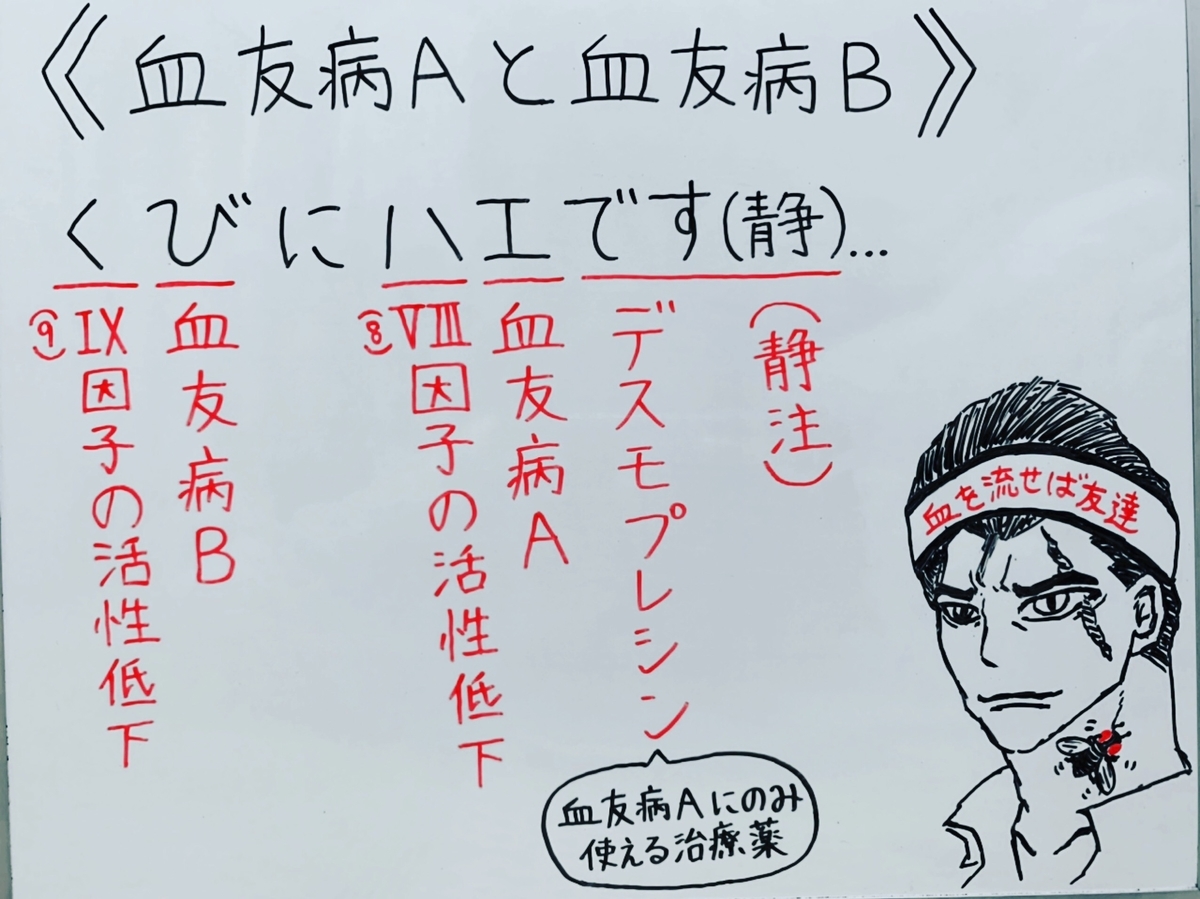 《血友病Aと血友病B》
くびにハエです(静)…
(9)IX因子の活性低下
血友病B
(8)VIII因子の活性低下
血友病A
デスモプレシン
(静注)
血友病Aにのみ
使える治療薬
血を流せば友達